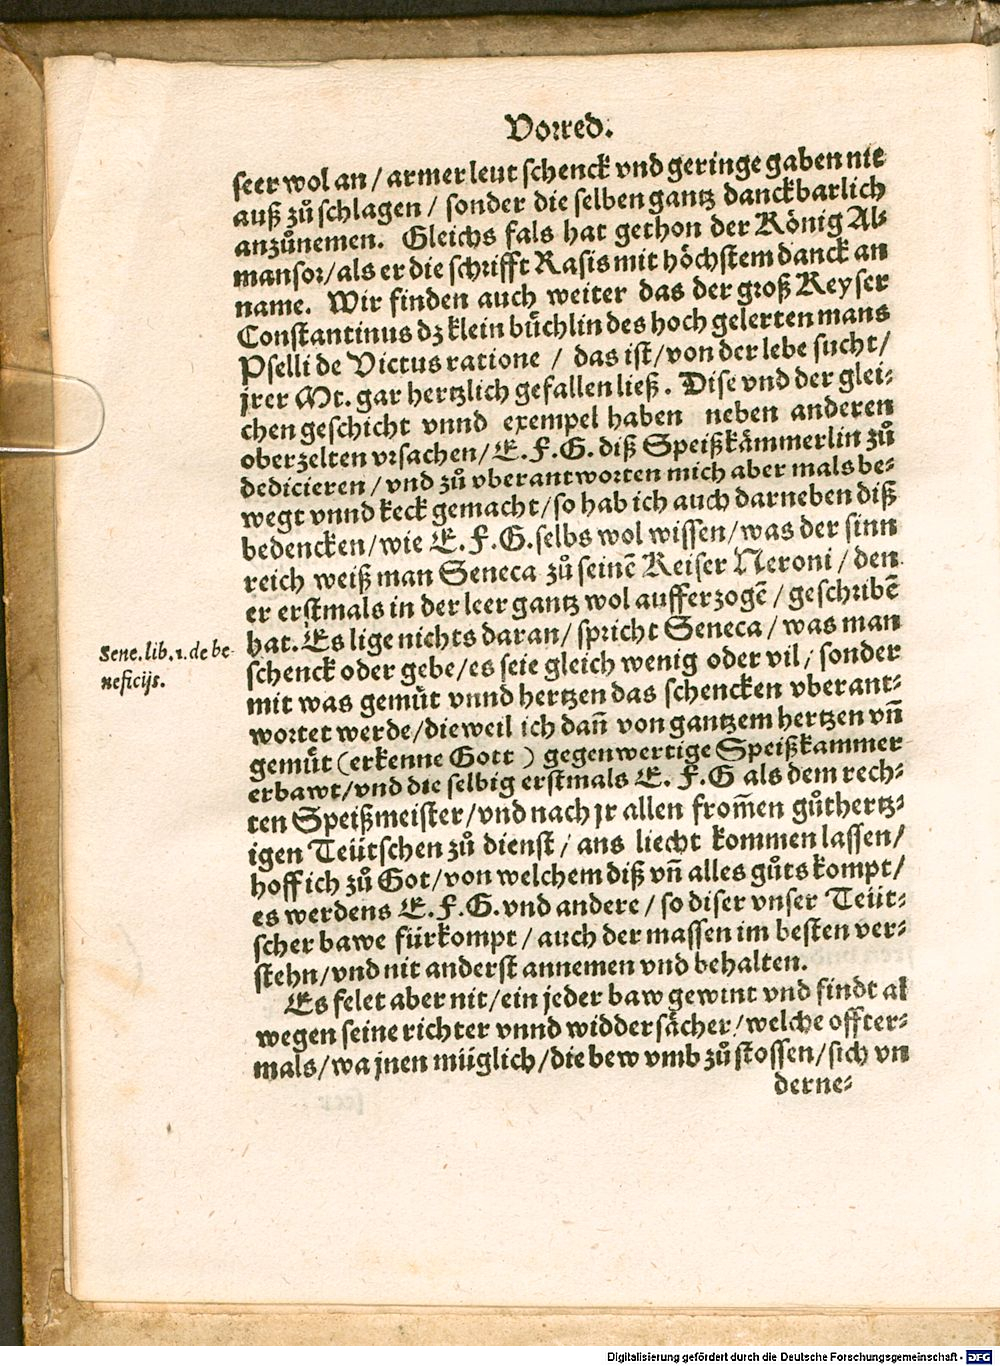 Vorred.
seer wol an / armer leut schenck vnd geringe gaben nit
auß zů schlagen / sonder die selben gantz danckbarlich
anzůnemen. Gleichs fals hat gethon der König Al-
mansor/als er die schrifft Rasis mit höchstem danck an
name. Wir finden auch weiter das der groß Keyser
Constantinus dz klein büchlin des hoch gelerten mans
Pselli de Victus ratione / das ist/von der lebe sucht/
jrer Mt. gar hertzlich gefallen ließ. Dise vnd der glei-
chen geschicht vnnd exempel haben neben anderen
oberzelten vrsachen/E.F.G. diß Speißkämmerlin zů
dedicieren/vnd zů vberantworten mich aber mals be-
wegt vnnd keck gemacht/so hab ich auch darneben diß
bedencken/wie E.F.G.selbs wol wissen/was der sinn
reich weiß man Seneca zů seinē Keiser Neroni/den
er erstmals in der leer gantz wol aufferzogē/geschribē
hat. Es lige nichts daran/spricht Seneca/was man
Sene.lib.1.de be-
neficijs.
schenck oder gebe/es seie gleich wenig oder vil/ sonder
mit was gemüt vnnd hertzen das schencken vberant-
wortet werde/dieweil ich dañ von gantzem hertzen vñ
gemüt (erkenne Gott ) gegenwertige Speißkammer
erbawt/vnd die selbig erstmals E. F.G als dem rech-
ten Speißmeister/vnd nach jr allen from̄en gůthertz-
igen Teütschen zů dienst/ ans liecht kommen lassen/
hoff ich zů Got/von welchem diß vñ alles gůts kompt/
es werdens E.F.G.vnd andere/so diser vnser Teüt-
scher bawe fürkompt/auch der massen im besten ver-
stehn/vnd nit anderst annemen vnd behalten.
Es felet aber nit/ein jeder baw gewint vnd findt al
wegen seine richter vnnd widdersächer/welche offter-
mals/wa jnen müglich/die bew vmb zů stossen/sich vn
derne-
Digitalisierung gefördert durch die Deutsche Forschungsgemeinschaft - DFG